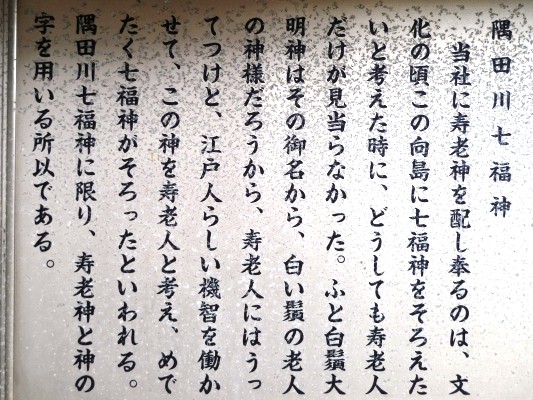 隅田川七福神
当社に寿老神を配し奉るのは、文
化の頃この向島に七福神をそろえた
いと考えた時に、どうしても寿老人
だけが見当らなかった。ふと白鬚大
明神はその御名から、白い鬚の老人
の神様だろうから、寿老人にはうっ
てつけと、江戸人らしい機智を働か
せて、この神を寿老人と考え、めで
たく七福神がそろったといわれる。
隅田川七福神に限り、寿老神と神の
字を用いる所以である。